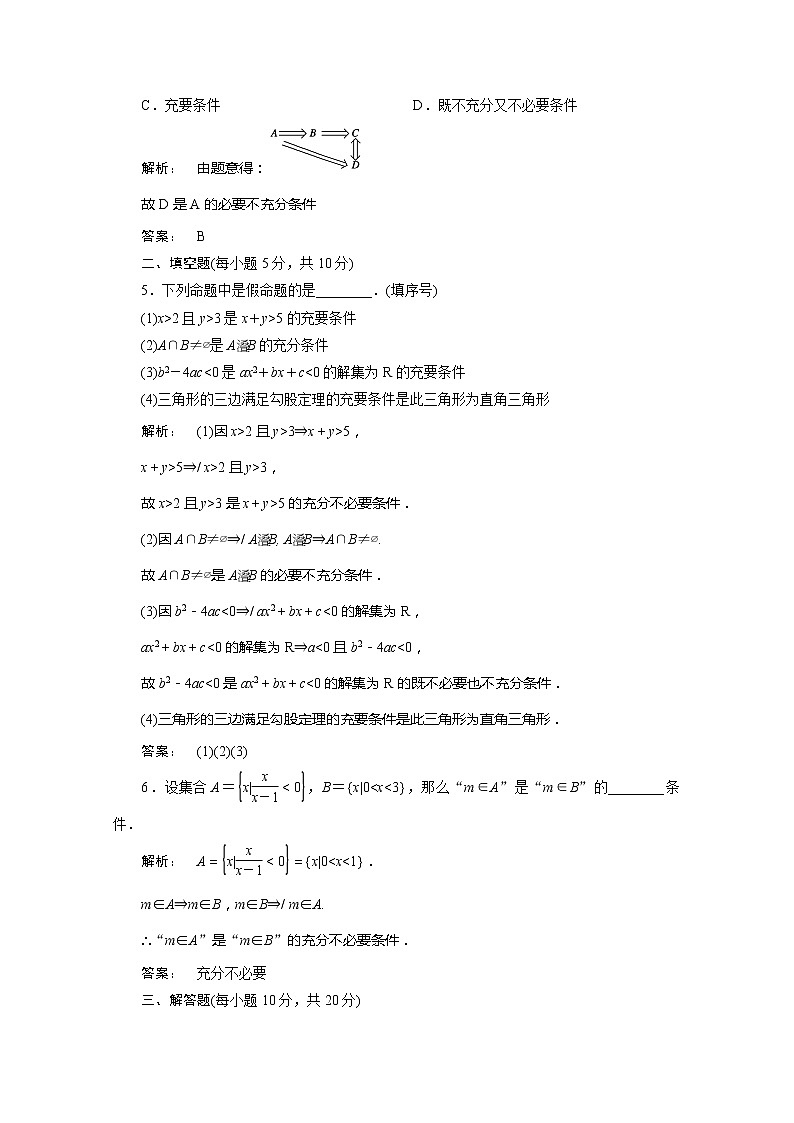 C．充要条件 D．既不充分又不必要条件
A⇒B⇒C
解析： 由题意得： D
故 D 是 A 的必要不充分条件
答案： B
二、填空题(每小题 5 分，共 10 分)
5．下列命题中是假命题的是________．(填序号)
(1)x>2 且 y>3 是 x＋y>5 的充要条件
(2)A∩B≠∅是 A B 的充分条件
(3)b²－4ac<0 是 ax²＋bx＋c<0 的解集为 R 的充要条件
(4)三角形的三边满足勾股定理的充要条件是此三角形为直角三角形
解析： (1)因 x>2 且 y>3⇒x＋y>5，
x＋y>5⇒/ x>2 且 y>3，
故 x>2 且 y>3 是 x＋y>5 的充分不必要条件．
(2)因 A∩B≠∅⇒/ A B, A B⇒A∩B≠∅.
故 A∩B≠∅是 A B 的必要不充分条件．
(3)因 b²－4ac<0⇒/ ax²＋bx＋c<0 的解集为 R，
ax²＋bx＋c<0 的解集为 R⇒a<0 且 b²－4ac<0，
故 b²－4ac<0 是 ax²＋bx＋c<0 的解集为 R 的既不必要也不充分条件．
(4)三角形的三边满足勾股定理的充要条件是此三角形为直角三角形．
答案： (1)(2)(3)
6．设集合 A＝{x|x/(x－1)<0}，B＝{x|0<x<3}，那么“m∈A”是“m∈B”的________条
件．
解析： A＝{x|x/(x－1)<0}＝{x|0<x<1}．
m∈A⇒m∈B，m∈B⇒/ m∈A.
∴“m∈A”是“m∈B”的充分不必要条件．
答案： 充分不必要
三、解答题(每小题 10 分，共 20 分)